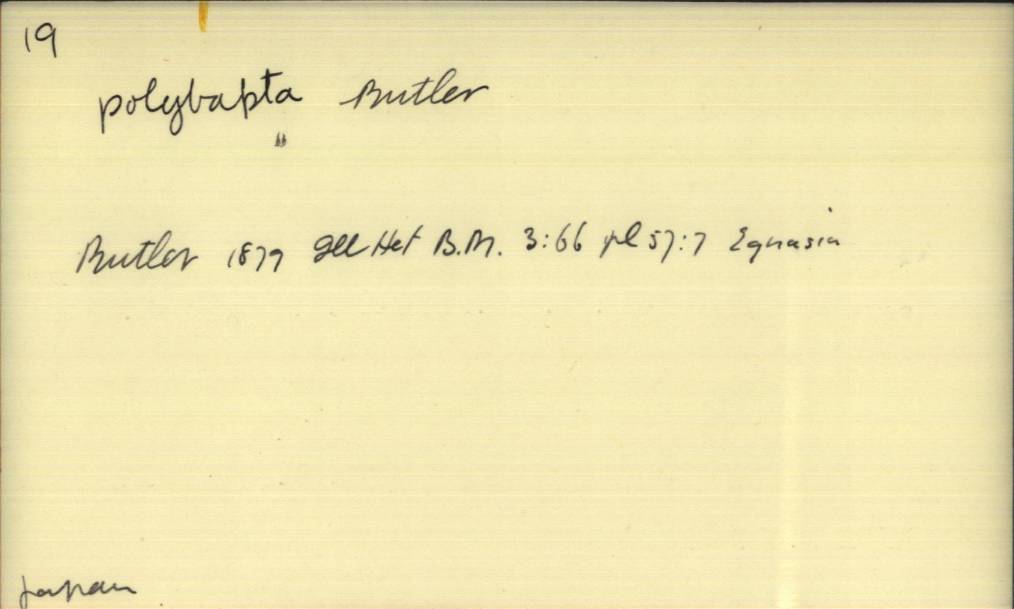 19
polybapta Butler
"
Butler 1879 Ill Het B.M. 3:66 pl 57:7 Egnasia
Japan